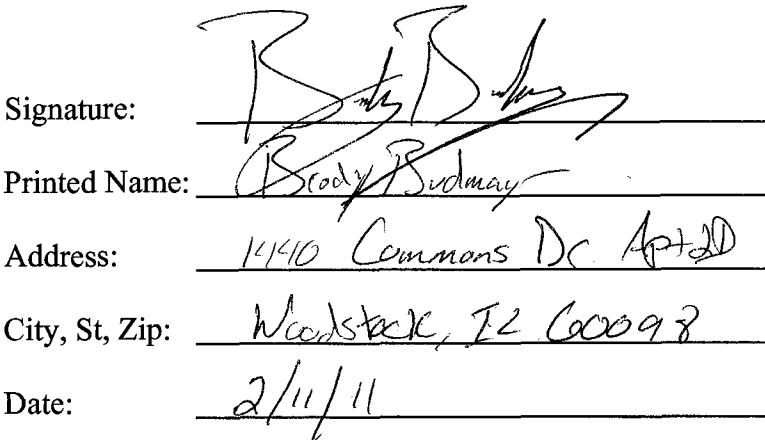 Signature: Brody Budmayr
Printed Name: Brody Budmayr
Address: 1440 Commons Dr Apt 2D
City, St, Zip: Woodstock, IL 60098
Date: 2/11/11